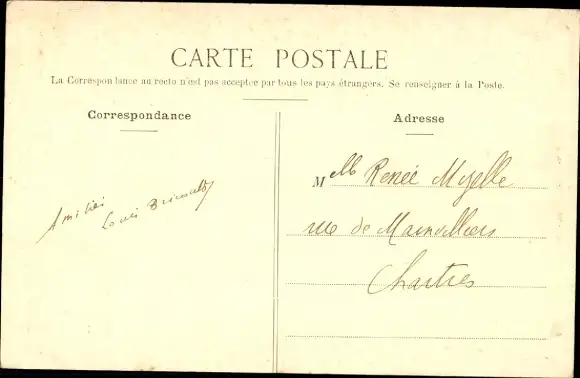 CARTE POSTALE
La Correspondance au recto n'est pas acceptée par tous les pays étrangers. Se renseigner à la Poste.
Correspondance
Adresse
Amitiés
Louis
Mlle Renée
rue de Mainvilliers
Chartres